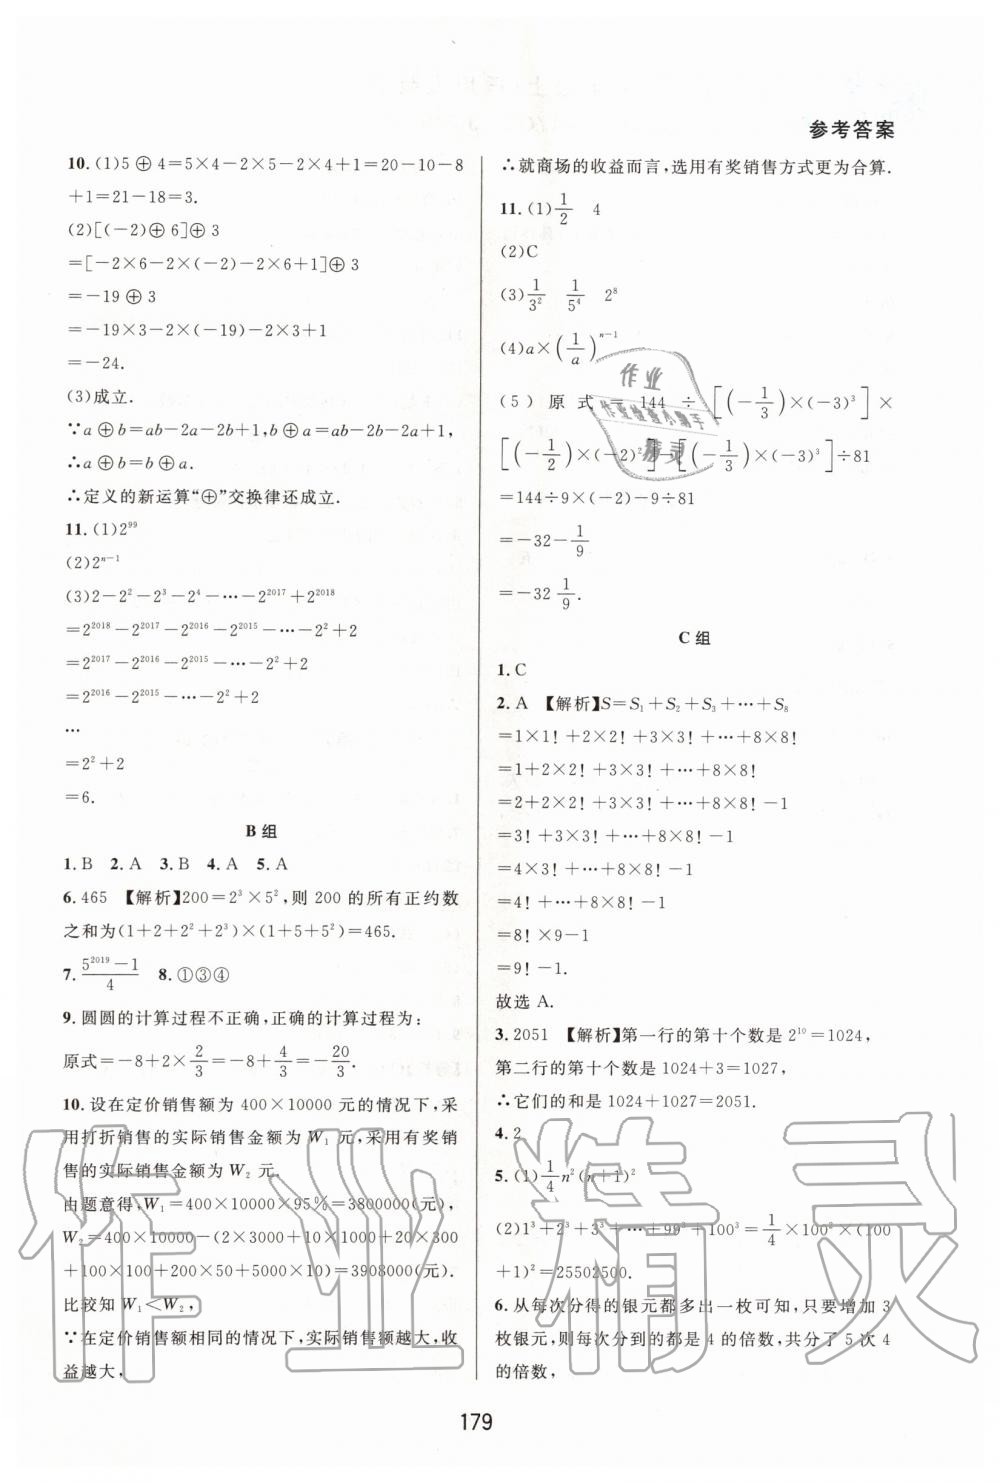 参考答案
10. (1)5⊕4=5×4-2×5-2×4+1=20-10-8
+1=21-18=3.
(2)[(-2)⊕6]⊕3
=[-2×6-2×(-2)-2×6+1]⊕3
=-19⊕3
=-19×3-2×(-19)-2×3+1
=-24.
(3)成立.
∵a⊕b=ab-2a-2b+1,b⊕a=ab-2a-2b+1,
∴a⊕b=b⊕a.
∴定义的新运算“⊕”交换律还成立.
11. (1)2⁹⁹
(2)2ⁿ⁻¹
(3)2-2²-2³-2⁴-…-2²⁰¹⁷+2²⁰¹⁸
=2²⁰¹⁸-2²⁰¹⁷-2²⁰¹⁶-2²⁰¹⁵-…-2²+2
=2²⁰¹⁷-2²⁰¹⁶-2²⁰¹⁵-…-2²+2
=2²⁰¹⁶-2²⁰¹⁵-…-2²+2
…
=2²+2
=6.
B组
1. B 2. A 3. B 4. A 5. A
6. 465 【解析】200=2³×5²,则 200 的所有正约数
之和为(1+2+2²+2³)×(1+5+5²)=465.
7. (5²⁰¹⁹-1)/4 8. ①③④
9. 圆圆的计算过程不正确,正确的计算过程为:
原式=-8+2×2/3=-8+4/3=-20/3.
10. 设在定价销售额为 400×10000 元的情况下,采
用打折销售的实际销售金额为 W₁ 元,采用有奖销
售的实际销售金额为 W₂ 元.
由题意得,W₁=400×10000×95%=3800000(元),
W₂=400×10000-(2×3000+10×1000+20×300
+100×100+200×50+5000×10)=3908000(元).
比较知 W₁<W₂,
∵在定价销售额相同的情况下,实际销售额越大,收
益越大,
∴就商场的收益而言,选用有奖销售方式更为合算.
11. (1)1/2 4
(2)C
(3)1/3² 1/5⁴ 2⁸
(4)a×(1/a)ⁿ⁻¹
(5)原式=144÷[(-1/3)×(-3)³]×
[(-1/2)×(-2)²]-[(-1/3)×(-3)³]÷81
=144÷9×(-2)-9÷81
=-32-1/9
=-32 1/9.
C组
1. C
2. A 【解析】S=S₁+S₂+S₃+…+S₈
=1×1!+2×2!+3×3!+…+8×8!
=1+2×2!+3×3!+…+8×8!
=2+2×2!+3×3!+…+8×8!-1
=3!+3×3!+…+8×8!-1
=4×3!+…+8×8!-1
=4!+…+8×8!-1
=8!×9-1
=9!-1.
故选 A.
3. 2051 【解析】第一行的第十个数是 2¹⁰=1024,
第二行的第十个数是 1024+3=1027,
∴它们的和是 1024+1027=2051.
4. 2
5. (1)1/4n²(n+1)²
(2)1³+2³+3³+…+99³+100³=1/4×100²×(100
+1)²=25502500.
6. 从每次分得的银元都多出一枚可知,只要增加 3
枚银元,则每次分到的都是 4 的倍数,共分了 5 次 4
的倍数,
179
作业
作业检查小助手
精灵
作业精灵